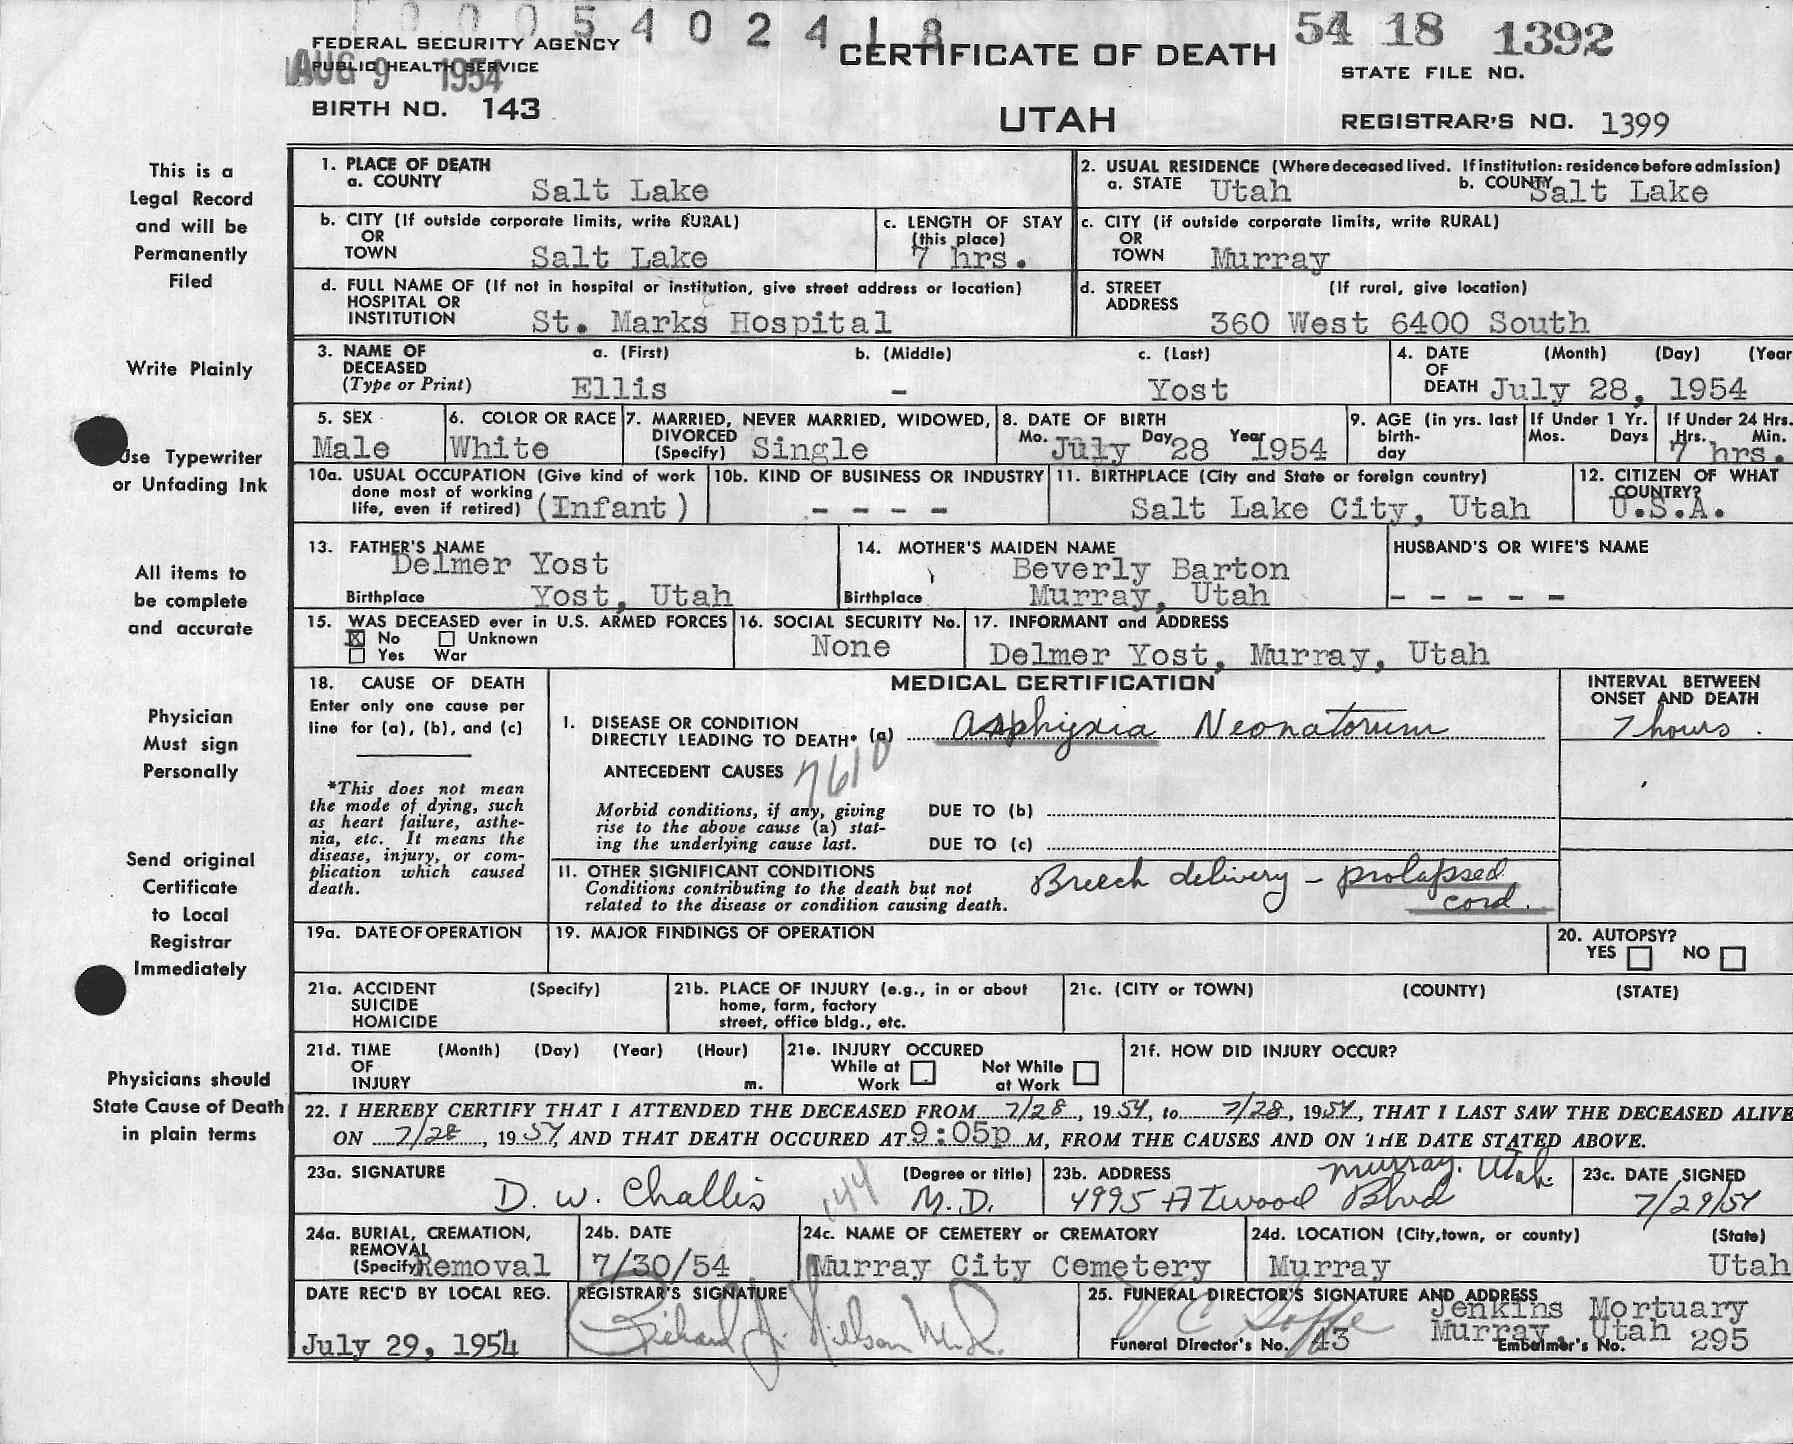 0 0 0 5 4 0 2 4 1 8
FEDERAL SECURITY AGENCY
PUBLIC HEALTH SERVICE
AUG 9 1954
BIRTH NO. 143
CERTIFICATE OF DEATH
UTAH
54 18 1392
STATE FILE NO.
REGISTRAR'S NO. 1399
This is a
Legal Record
and will be
Permanently
Filed
Write Plainly
Use Typewriter
or Unfading Ink
All items to
be complete
and accurate
Physician
Must sign
Personally
Send original
Certificate
to Local
Registrar
Immediately
Physicians should
State Cause of Death
in plain terms
1. PLACE OF DEATH
a. COUNTY Salt Lake
2. USUAL RESIDENCE (Where deceased lived. If institution: residence before admission)
a. STATE Utah b. COUNTY Salt Lake
b. CITY (If outside corporate limits, write RURAL)
OR
TOWN Salt Lake
c. LENGTH OF STAY
(this place)
7 hrs.
c. CITY (if outside corporate limits, write RURAL)
OR
TOWN Murray
d. FULL NAME OF (If not in hospital or institution, give street address or location)
HOSPITAL OR
INSTITUTION St. Marks Hospital
d. STREET (If rural, give location)
ADDRESS
360 West 6400 South
3. NAME OF a. (First) b. (Middle) c. (Last)
DECEASED
(Type or Print) Ellis - Yost
4. DATE (Month) (Day) (Year
OF
DEATH July 28, 1954
5. SEX
Male
6. COLOR OR RACE
White
7. MARRIED, NEVER MARRIED, WIDOWED,
DIVORCED
(Specify) Single
8. DATE OF BIRTH
Mo. July Day 28 Year 1954
9. AGE (in yrs. last
birth-
day
If Under 1 Yr.
Mos. Days
If Under 24 Hrs.
Hrs. Min.
7 hrs.
10a. USUAL OCCUPATION (Give kind of work
done most of working
life, even if retired) (Infant)
10b. KIND OF BUSINESS OR INDUSTRY
- - - -
11. BIRTHPLACE (City and State or foreign country)
Salt Lake City, Utah
12. CITIZEN OF WHAT
COUNTRY?
U.S.A.
13. FATHER'S NAME
Delmer Yost
Birthplace Yost, Utah
14. MOTHER'S MAIDEN NAME
Beverly Barton
Birthplace Murray, Utah
HUSBAND'S OR WIFE'S NAME
- - - - -
15. WAS DECEASED ever in U.S. ARMED FORCES
X No Unknown
Yes War
16. SOCIAL SECURITY No.
None
17. INFORMANT and ADDRESS
Delmer Yost, Murray, Utah
18. CAUSE OF DEATH
Enter only one cause per
line for (a), (b), and (c)
*This does not mean
the mode of dying, such
as heart failure, asthe-
nia, etc. It means the
disease, injury, or com-
plication which caused
death.
MEDICAL CERTIFICATION
INTERVAL BETWEEN
ONSET AND DEATH
I. DISEASE OR CONDITION
DIRECTLY LEADING TO DEATH* (a) Asphyxia Neonatorum
7 hours
ANTECEDENT CAUSES 7610
Morbid conditions, if any, giving
rise to the above cause (a) stat-
ing the underlying cause last.
DUE TO (b)
DUE TO (c)
II. OTHER SIGNIFICANT CONDITIONS
Conditions contributing to the death but not
related to the disease or condition causing death.
Breech delivery - prolapsed
cord.
19a. DATE OF OPERATION
19. MAJOR FINDINGS OF OPERATION
20. AUTOPSY?
YES NO
21a. ACCIDENT (Specify)
SUICIDE
HOMICIDE
21b. PLACE OF INJURY (e.g., in or about
home, farm, factory
street, office bldg., etc.
21c. (CITY or TOWN) (COUNTY) (STATE)
21d. TIME (Month) (Day) (Year) (Hour)
OF
INJURY m.
21e. INJURY OCCURED
While at Not While
Work at Work
21f. HOW DID INJURY OCCUR?
22. I HEREBY CERTIFY THAT I ATTENDED THE DECEASED FROM 7/28, 1954, to 7/28, 1954, THAT I LAST SAW THE DECEASED ALIVE
ON 7/28, 1954, AND THAT DEATH OCCURED AT 9:05p M, FROM THE CAUSES AND ON THE DATE STATED ABOVE.
23a. SIGNATURE (Degree or title)
D. W. Challis 144 M.D.
23b. ADDRESS Murray, Utah.
4995 Atwood Blvd
23c. DATE SIGNED
7/29/54
24a. BURIAL, CREMATION,
REMOVAL
(Specify) Removal
24b. DATE
7/30/54
24c. NAME OF CEMETERY or CREMATORY
Murray City Cemetery
24d. LOCATION (City, town, or county) (State)
Murray Utah
DATE REC'D BY LOCAL REG.
July 29, 1954
REGISTRAR'S SIGNATURE
Richard J. Nielson M.D.
25. FUNERAL DIRECTOR'S SIGNATURE AND ADDRESS
Jenkins Mortuary
Murray, Utah
Funeral Director's No. 43 Embalmer's No. 295